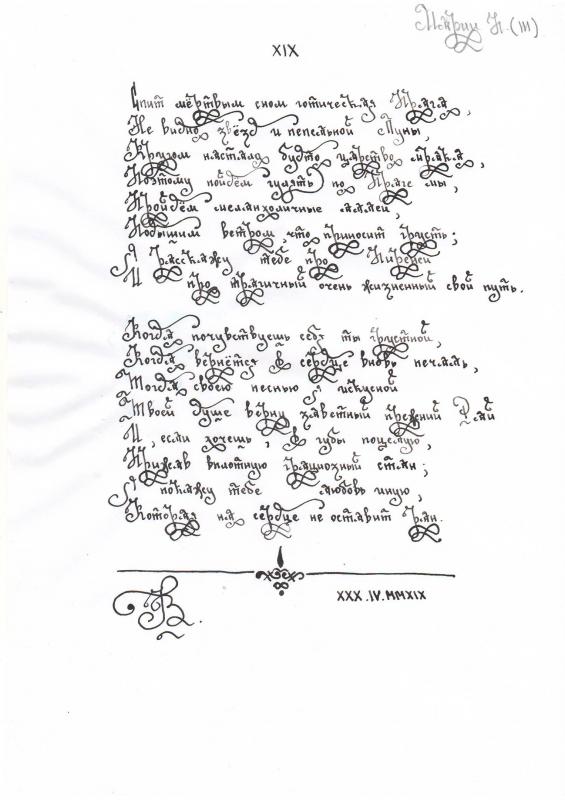 Марии К. (III)
XIX
Спит мёртвым сном готическая Прага,
Не видно звёзд и пепельной Луны,
Кругом настало будто царство мрака,
Поэтому пойдём гулять по Праге мы,
Пройдём меланхоличные аллеи,
Подышим ветром, что приносит грусть;
Я расскажу тебе про Пиренеи
И про трагичный очень жизненный свой путь.
Когда почувствуешь себя ты грустной,
Когда вернётся в сердце вновь печаль,
Тогда своею песнью я искусной
Твоей душе верну заветный прежний Рай
И, если хочешь, в губы поцелую,
Прижав вплотную грациозный стан;
Я покажу тебе любовь иную,
Которая на сердце не оставит ран.
XXX.IV.MMXIX